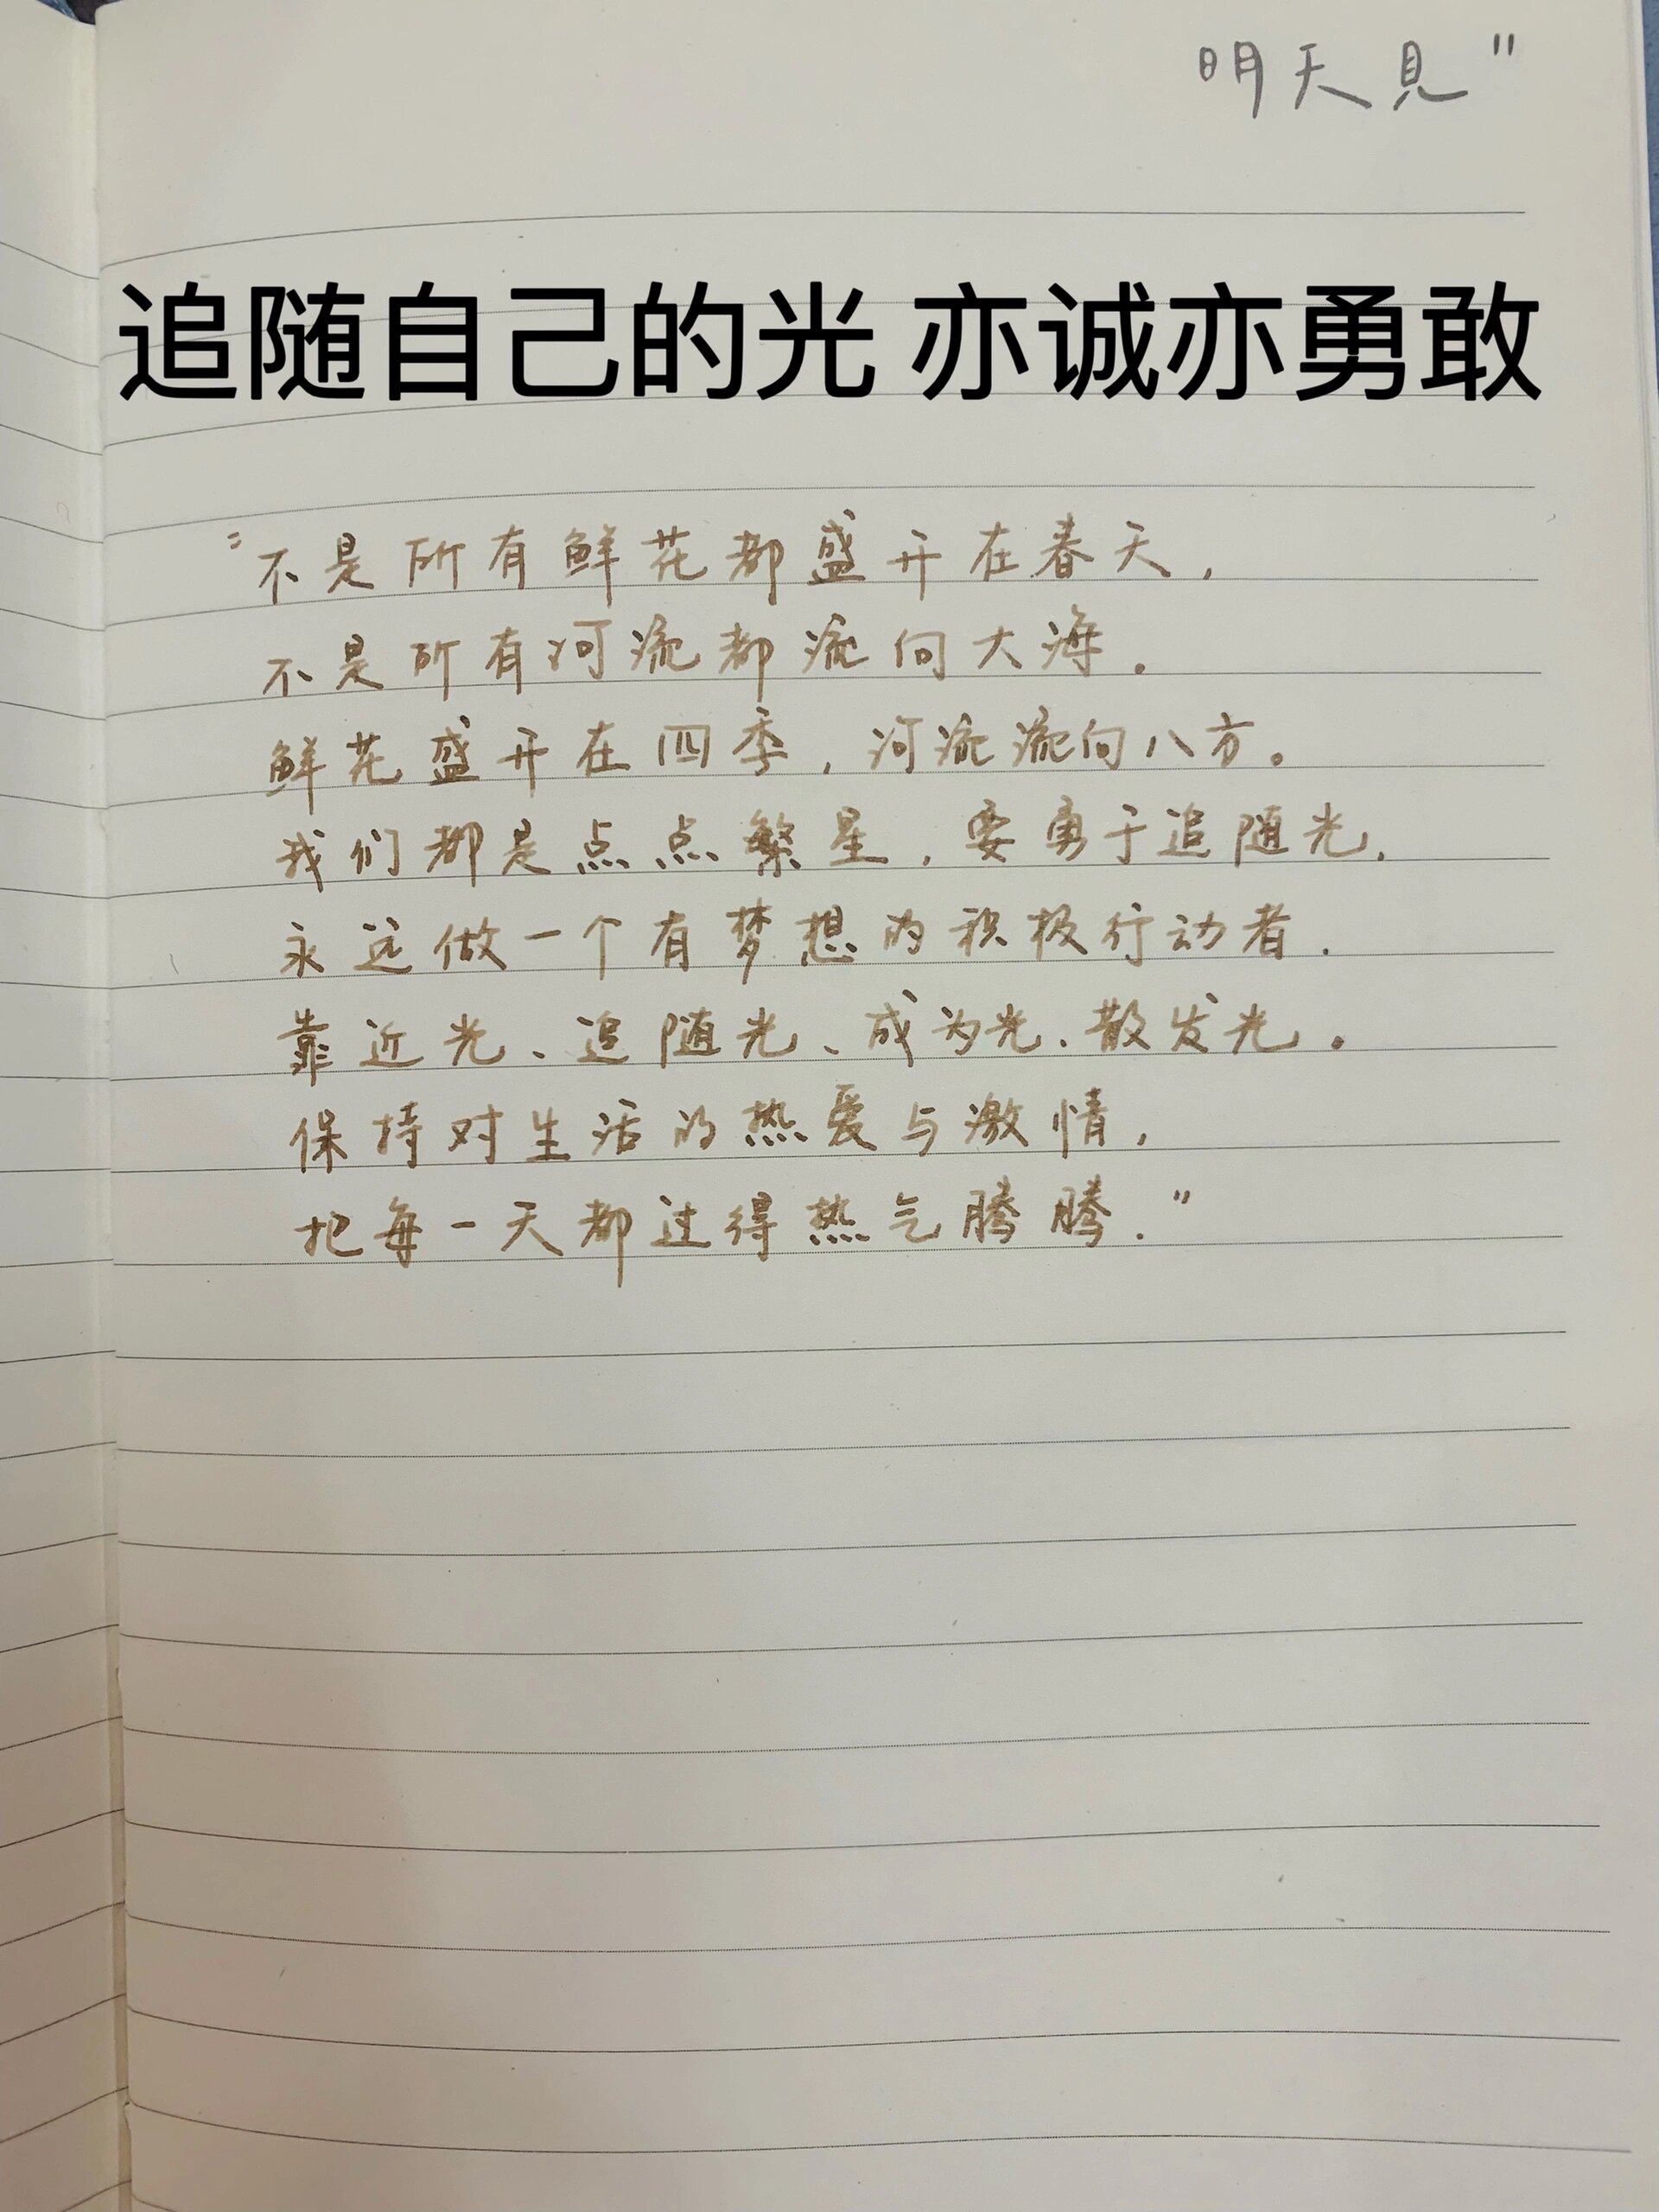 明天見"
追随自己的光 亦诚亦勇敢
"不是所有鲜花都盛开在春天,
不是所有河流都流向大海.
鲜花盛开在四季,河流流向八方。
我们都是点点繁星,要勇于追随光,
永远做一个有梦想的积极行动者.
靠近光、追随光、成为光、散发光.
保持对生活的热爱与激情,
把每一天都过得热气腾腾."